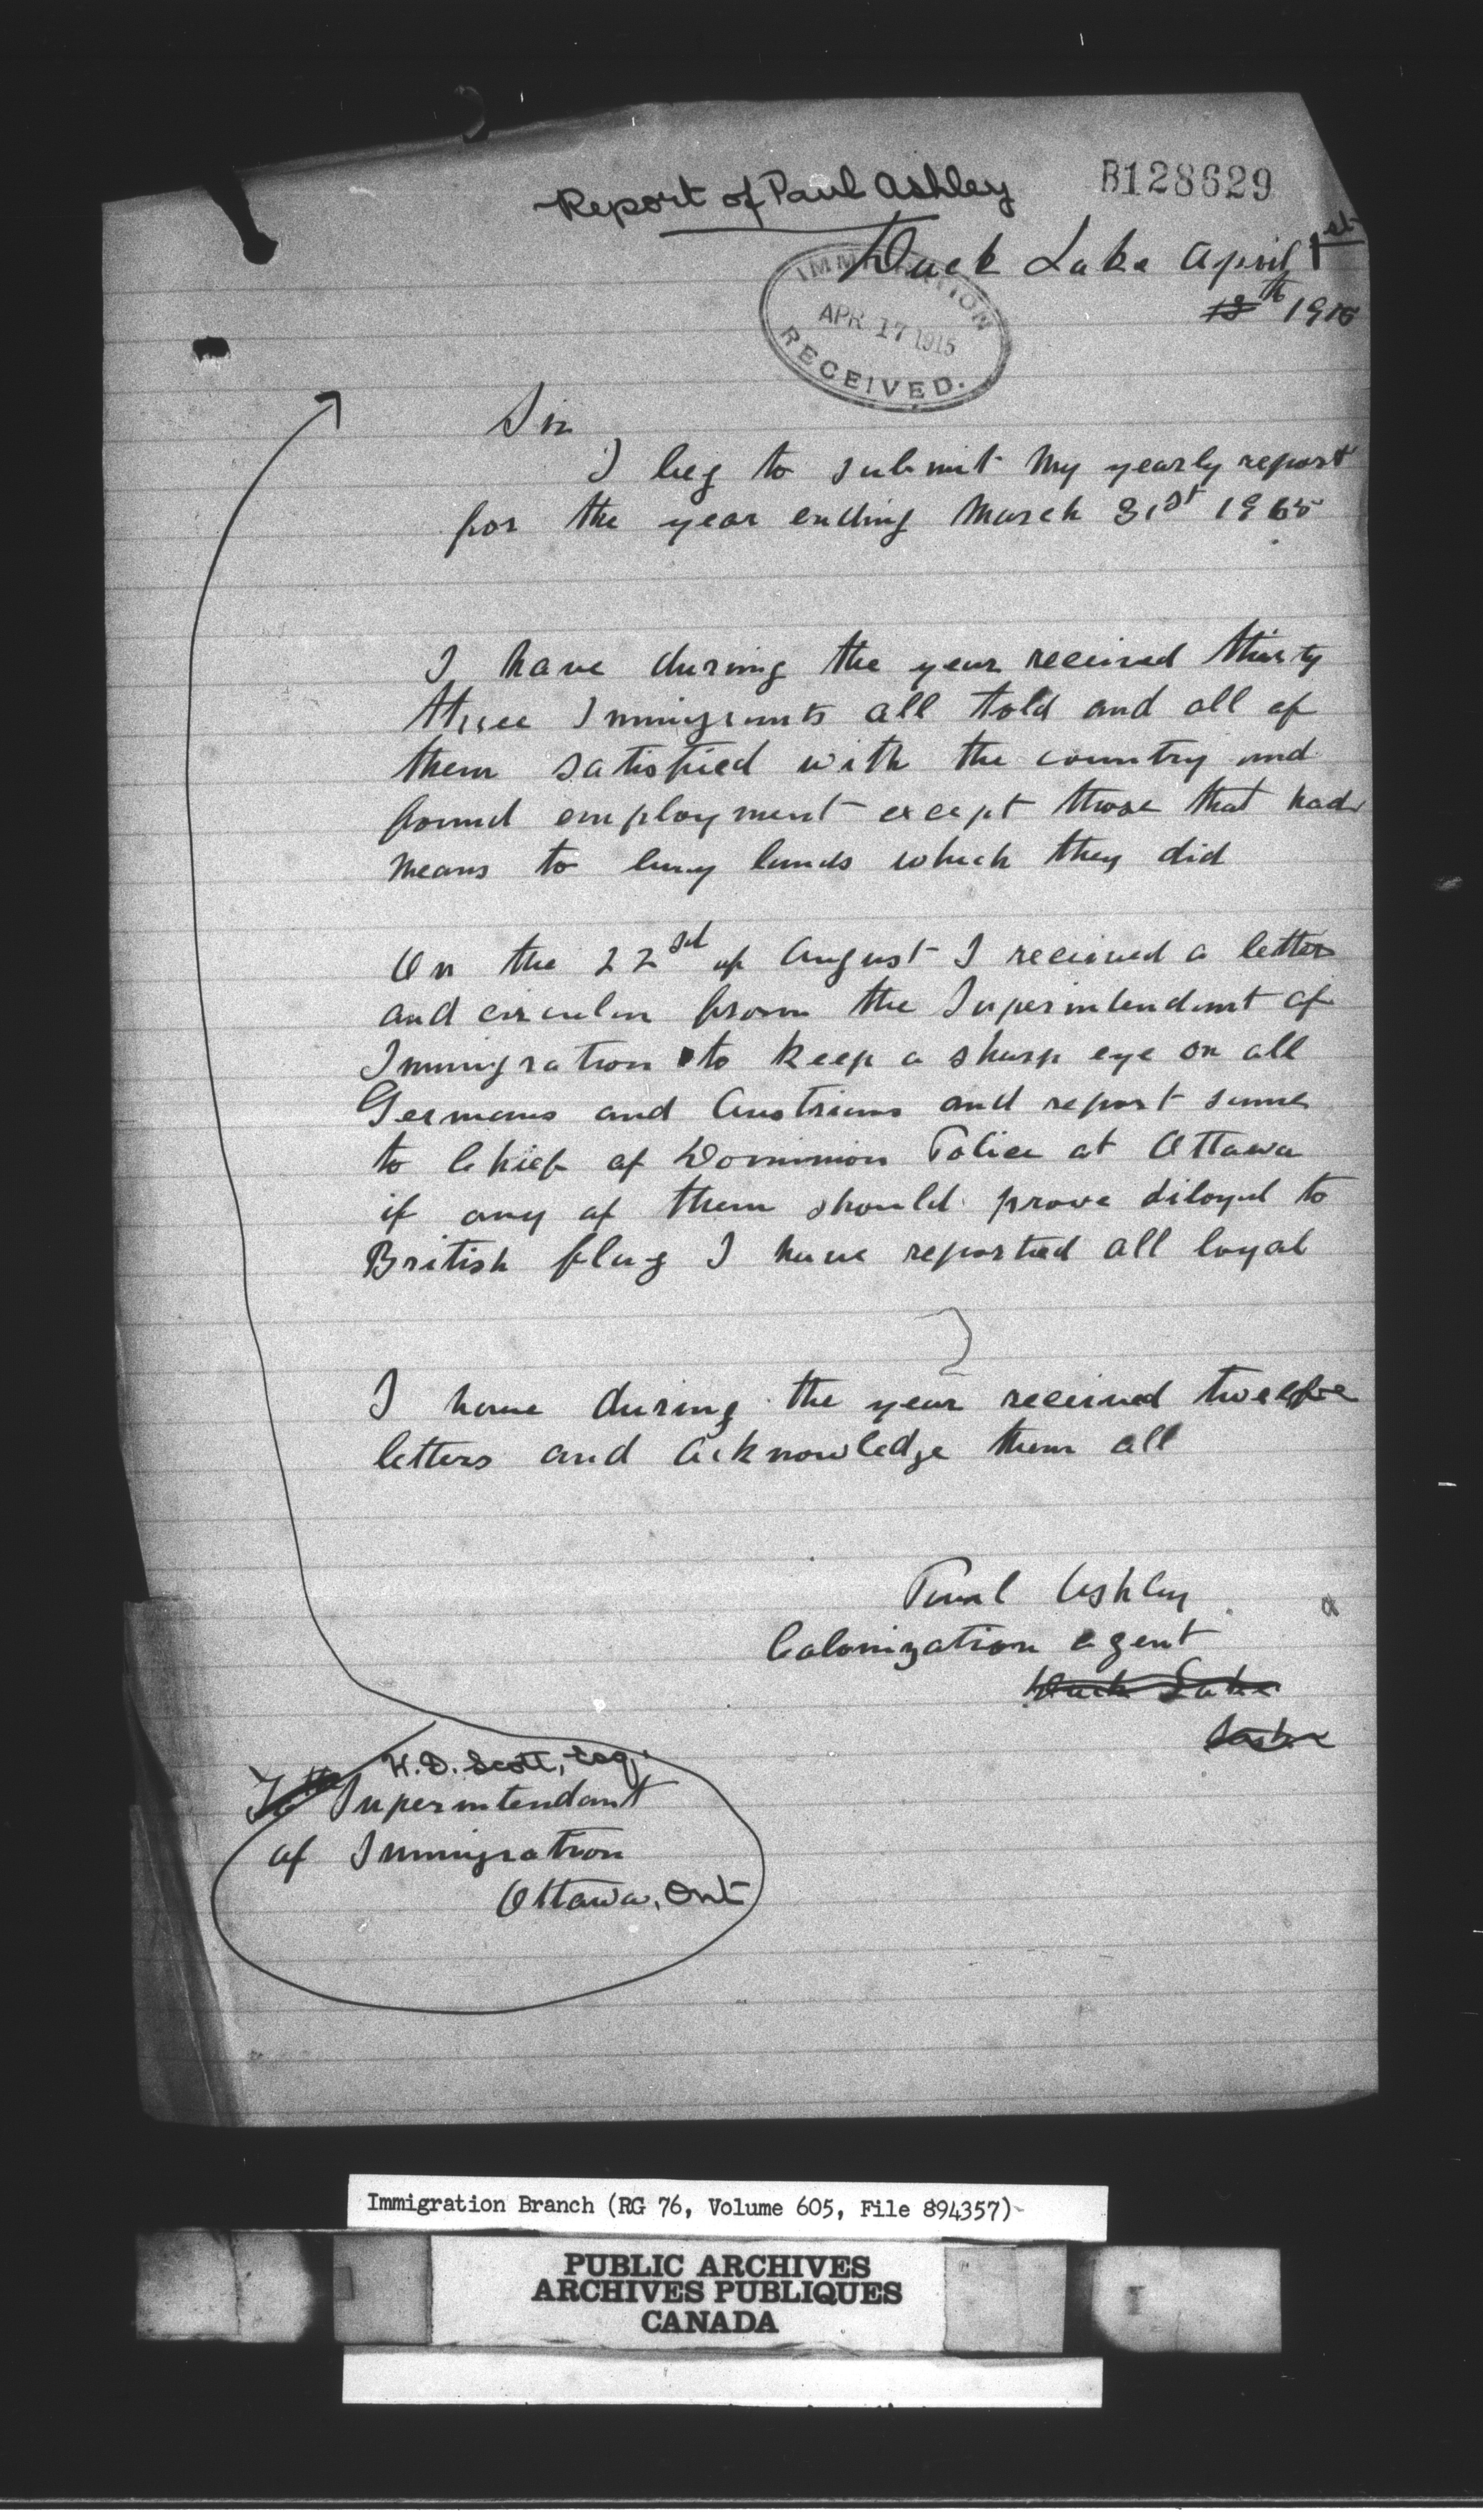 Report of Paul Ashley
B128629
Duck Lake April 1st
13th 1915
IMMIGRATION
APR 17 1915
RECEIVED.
Sir
I beg to submit my yearly report
for the year ending March 31st 1915
I have during the year received thirty
three Immigrants all told and all of
them satisfied with the country and
found employment except those that had
means to buy lands which they did
On the 22nd of August I received a letter
and circular from the Superintendant of
Immigration to keep a sharp eye on all
Germans and Austrians and report same
to Chief of Dominion Police at Ottawa
if any of them should prove diloyal to
British flag I have reported all loyal
I have during the year received twelfve
letters and acknowledge them all
Paul Ashley
Colonization agent
Duck Lake
Sask
W.D. Scott, Esq.
To the Superintendant
of Immigration
Ottawa, Ont
Immigration Branch (RG 76, Volume 605, File 894357)
PUBLIC ARCHIVES
ARCHIVES PUBLIQUES
CANADA